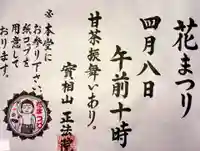 花まつり
四月八日
午前十時
甘茶振舞いあり。
寳相山 正法
※本堂に
お参り下さい
紙コップを
用意して
おります。